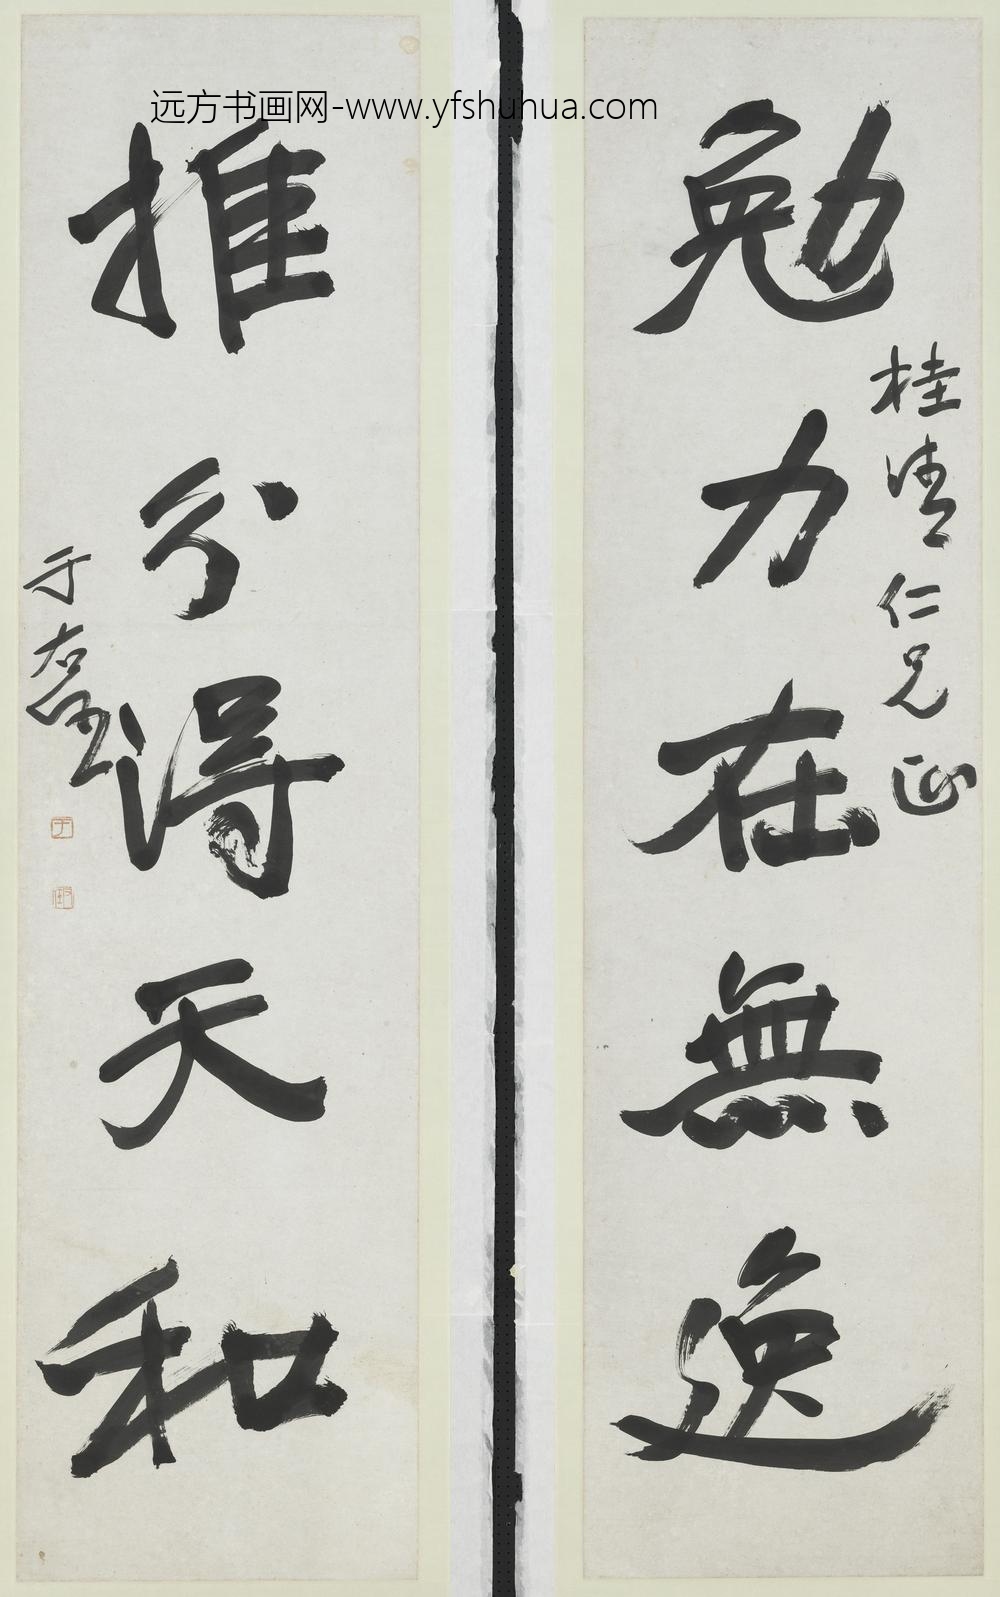 远方书画网-www.yfshuhua.com
勉力在無逸
桂清仁兄正
推分得天和
于右任